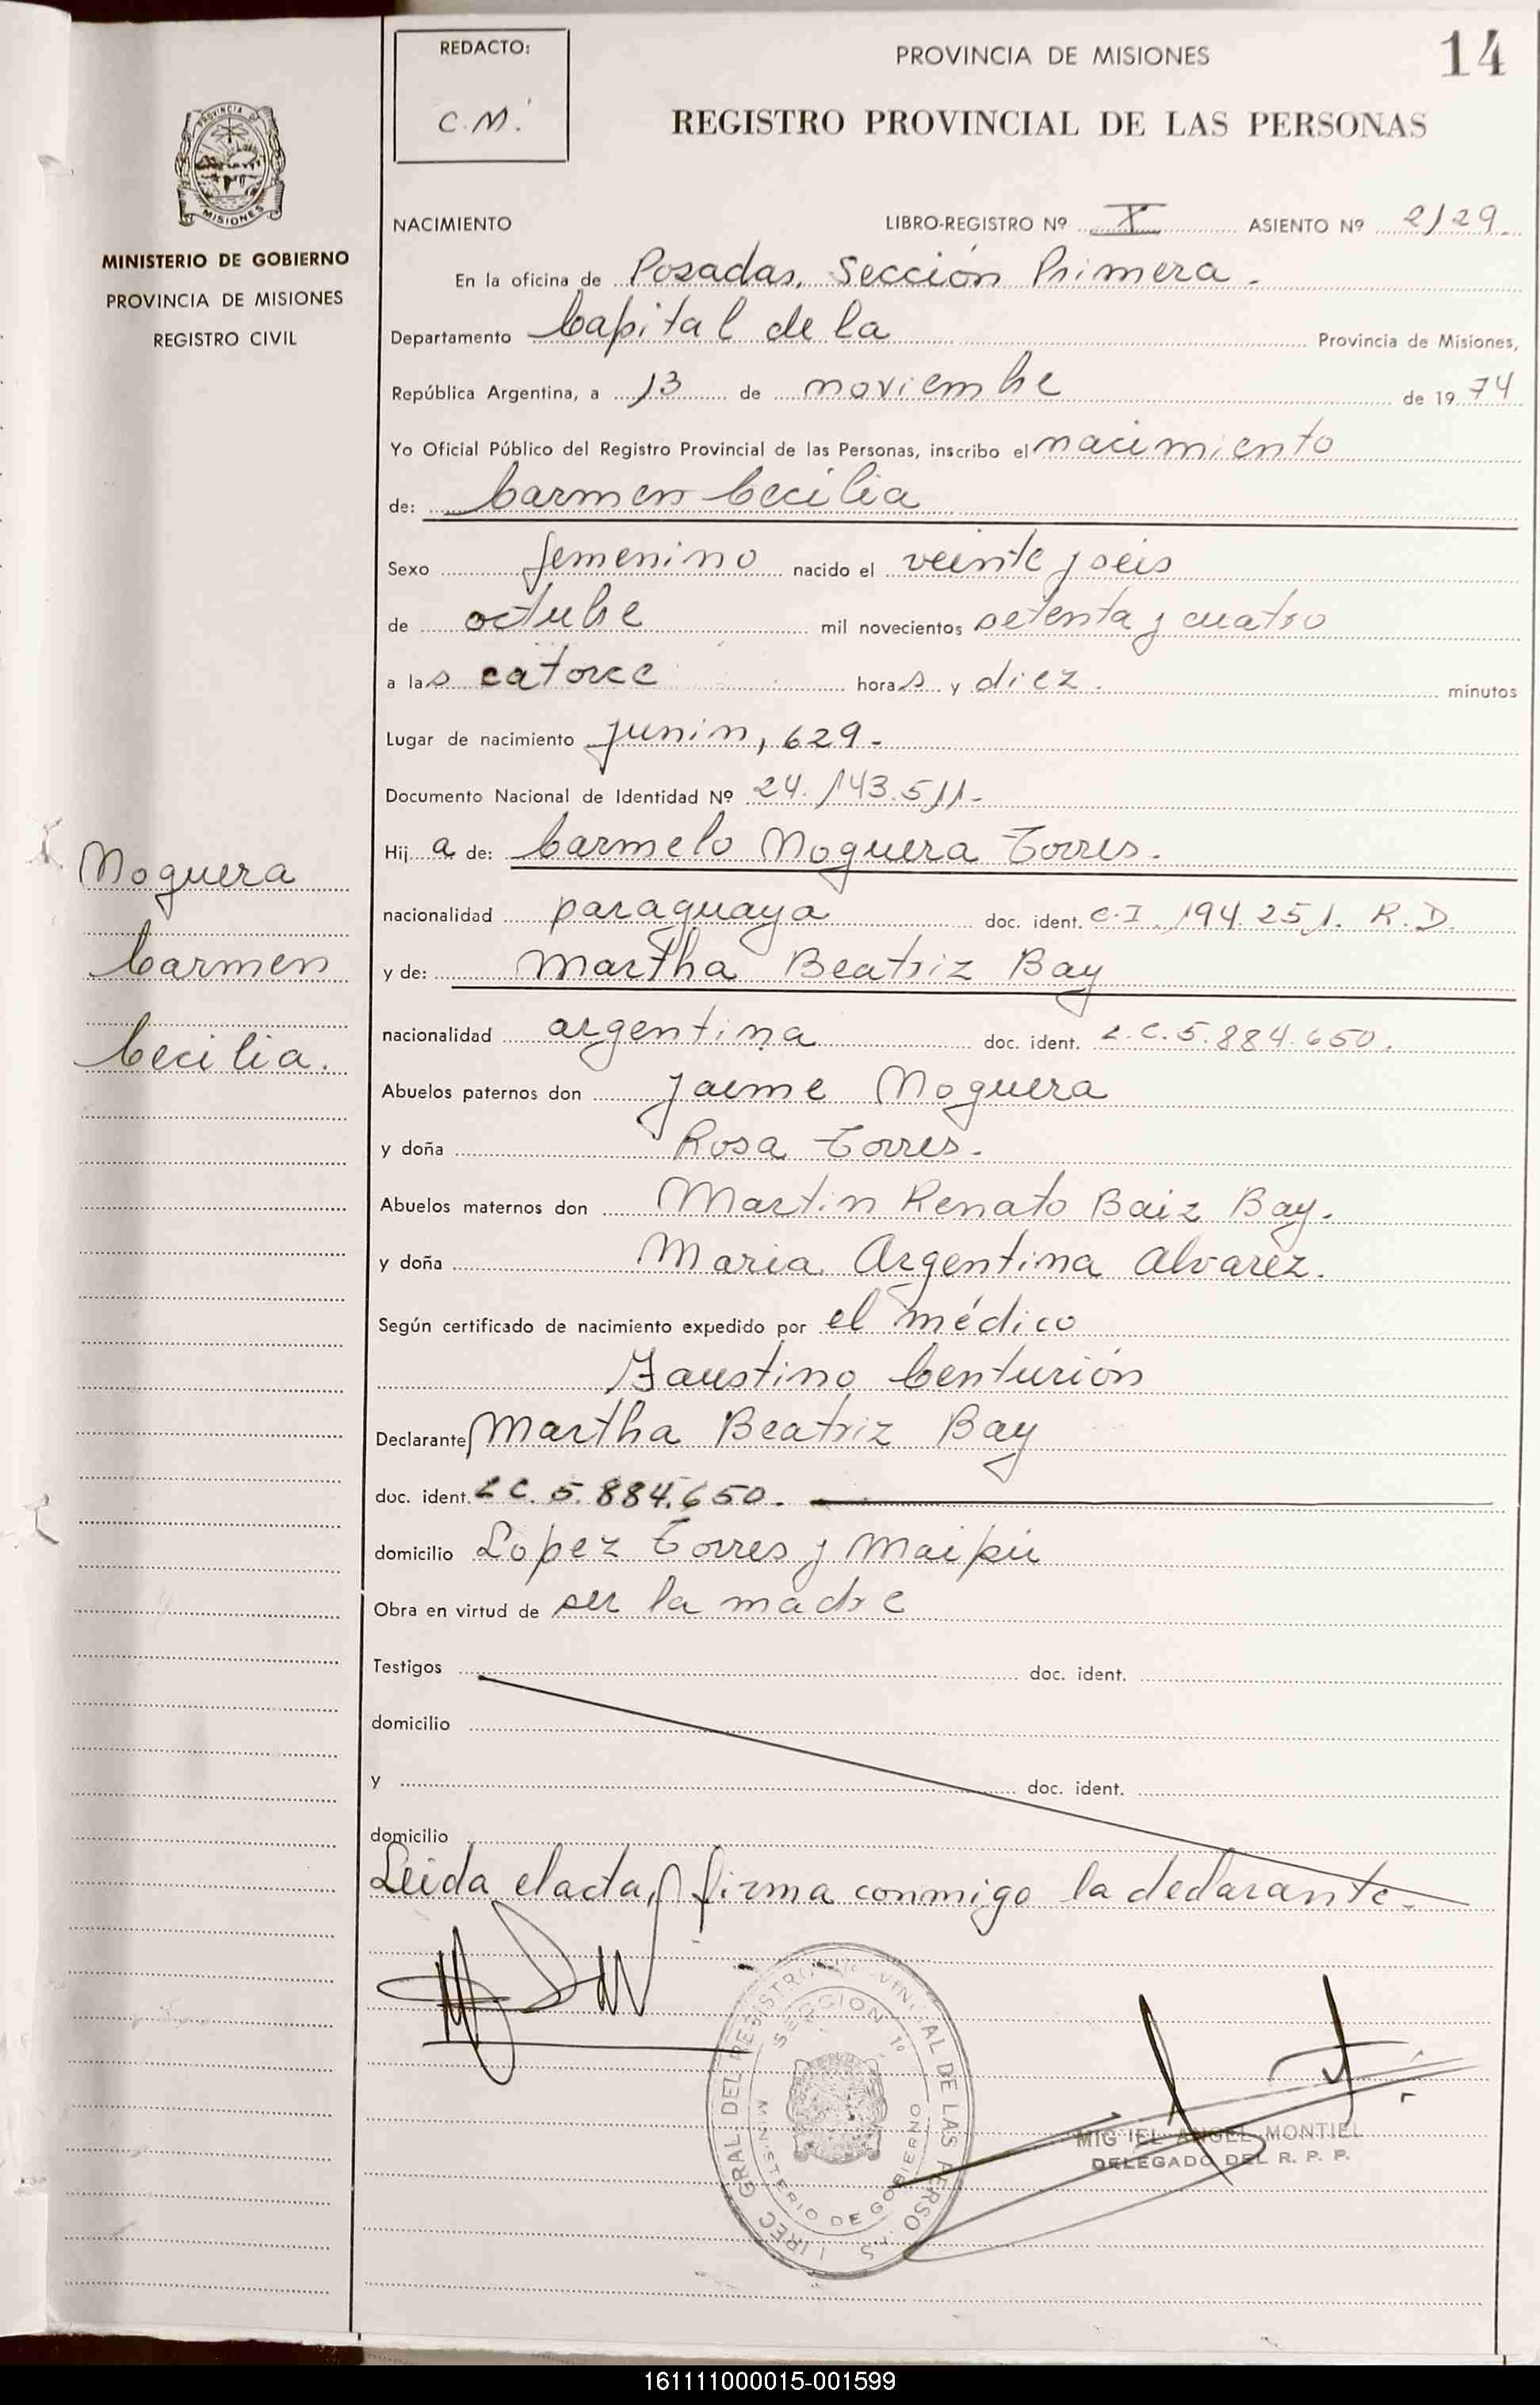 REDACTO:
C.M.
PROVINCIA DE MISIONES
14
REGISTRO PROVINCIAL DE LAS PERSONAS
PROVINCIA DE
MISIONES
MINISTERIO DE GOBIERNO
PROVINCIA DE MISIONES
REGISTRO CIVIL
NACIMIENTO LIBRO-REGISTRO Nº X ASIENTO Nº 2129
En la oficina de Posadas, Sección Primera.
Departamento Capital de la Provincia de Misiones,
República Argentina, a 13 de noviembre de 1974
Yo Oficial Público del Registro Provincial de las Personas, inscribo el nacimiento
de: Carmen Cecilia
Sexo femenino nacido el veinte y seis
de octubre mil novecientos setenta y cuatro
a las catorce horas y diez. minutos
Lugar de nacimiento Junin, 629.
Documento Nacional de Identidad Nº 24.143.511.
Hija de: Carmelo Noguera Torres.
nacionalidad paraguaya doc. ident. C.I. 194.251. R.D.
y de: Martha Beatriz Bay
nacionalidad argentina doc. ident. L.C. 5.884.650.
Abuelos paternos don Jaime Noguera
y doña Rosa Torres.
Abuelos maternos don Martin Renato Baiz Bay.
y doña Maria Argentina Alvarez.
Según certificado de nacimiento expedido por el médico
Faustino Centurión
Declarante Martha Beatriz Bay
doc. ident. L C. 5.884.650.
domicilio Lopez Torres y Maipú
Obra en virtud de ser la madre
Testigos doc. ident.
domicilio
y doc. ident.
domicilio
Leida el acta, firma conmigo la declarante.
Noguera
Carmen
Cecilia.
GRAL DEL REGISTRO PROVINCIAL DE LAS PERSONAS
SECCION 1º
MINISTERIO DE GOBIERNO
MIGUEL ANGEL MONTIEL
DELEGADO DEL R. P. P.
161111000015-001599